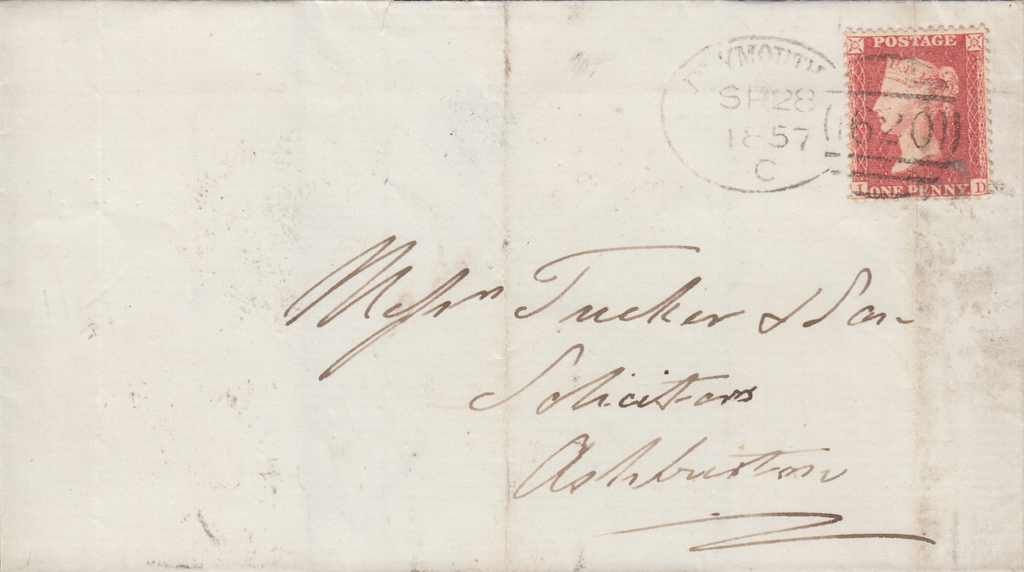 PLYMOUTH
SP 28
1857
C
620
POSTAGE
I D
ONE PENNY
Messrs Tucker & Son
Solicitors
Ashburton